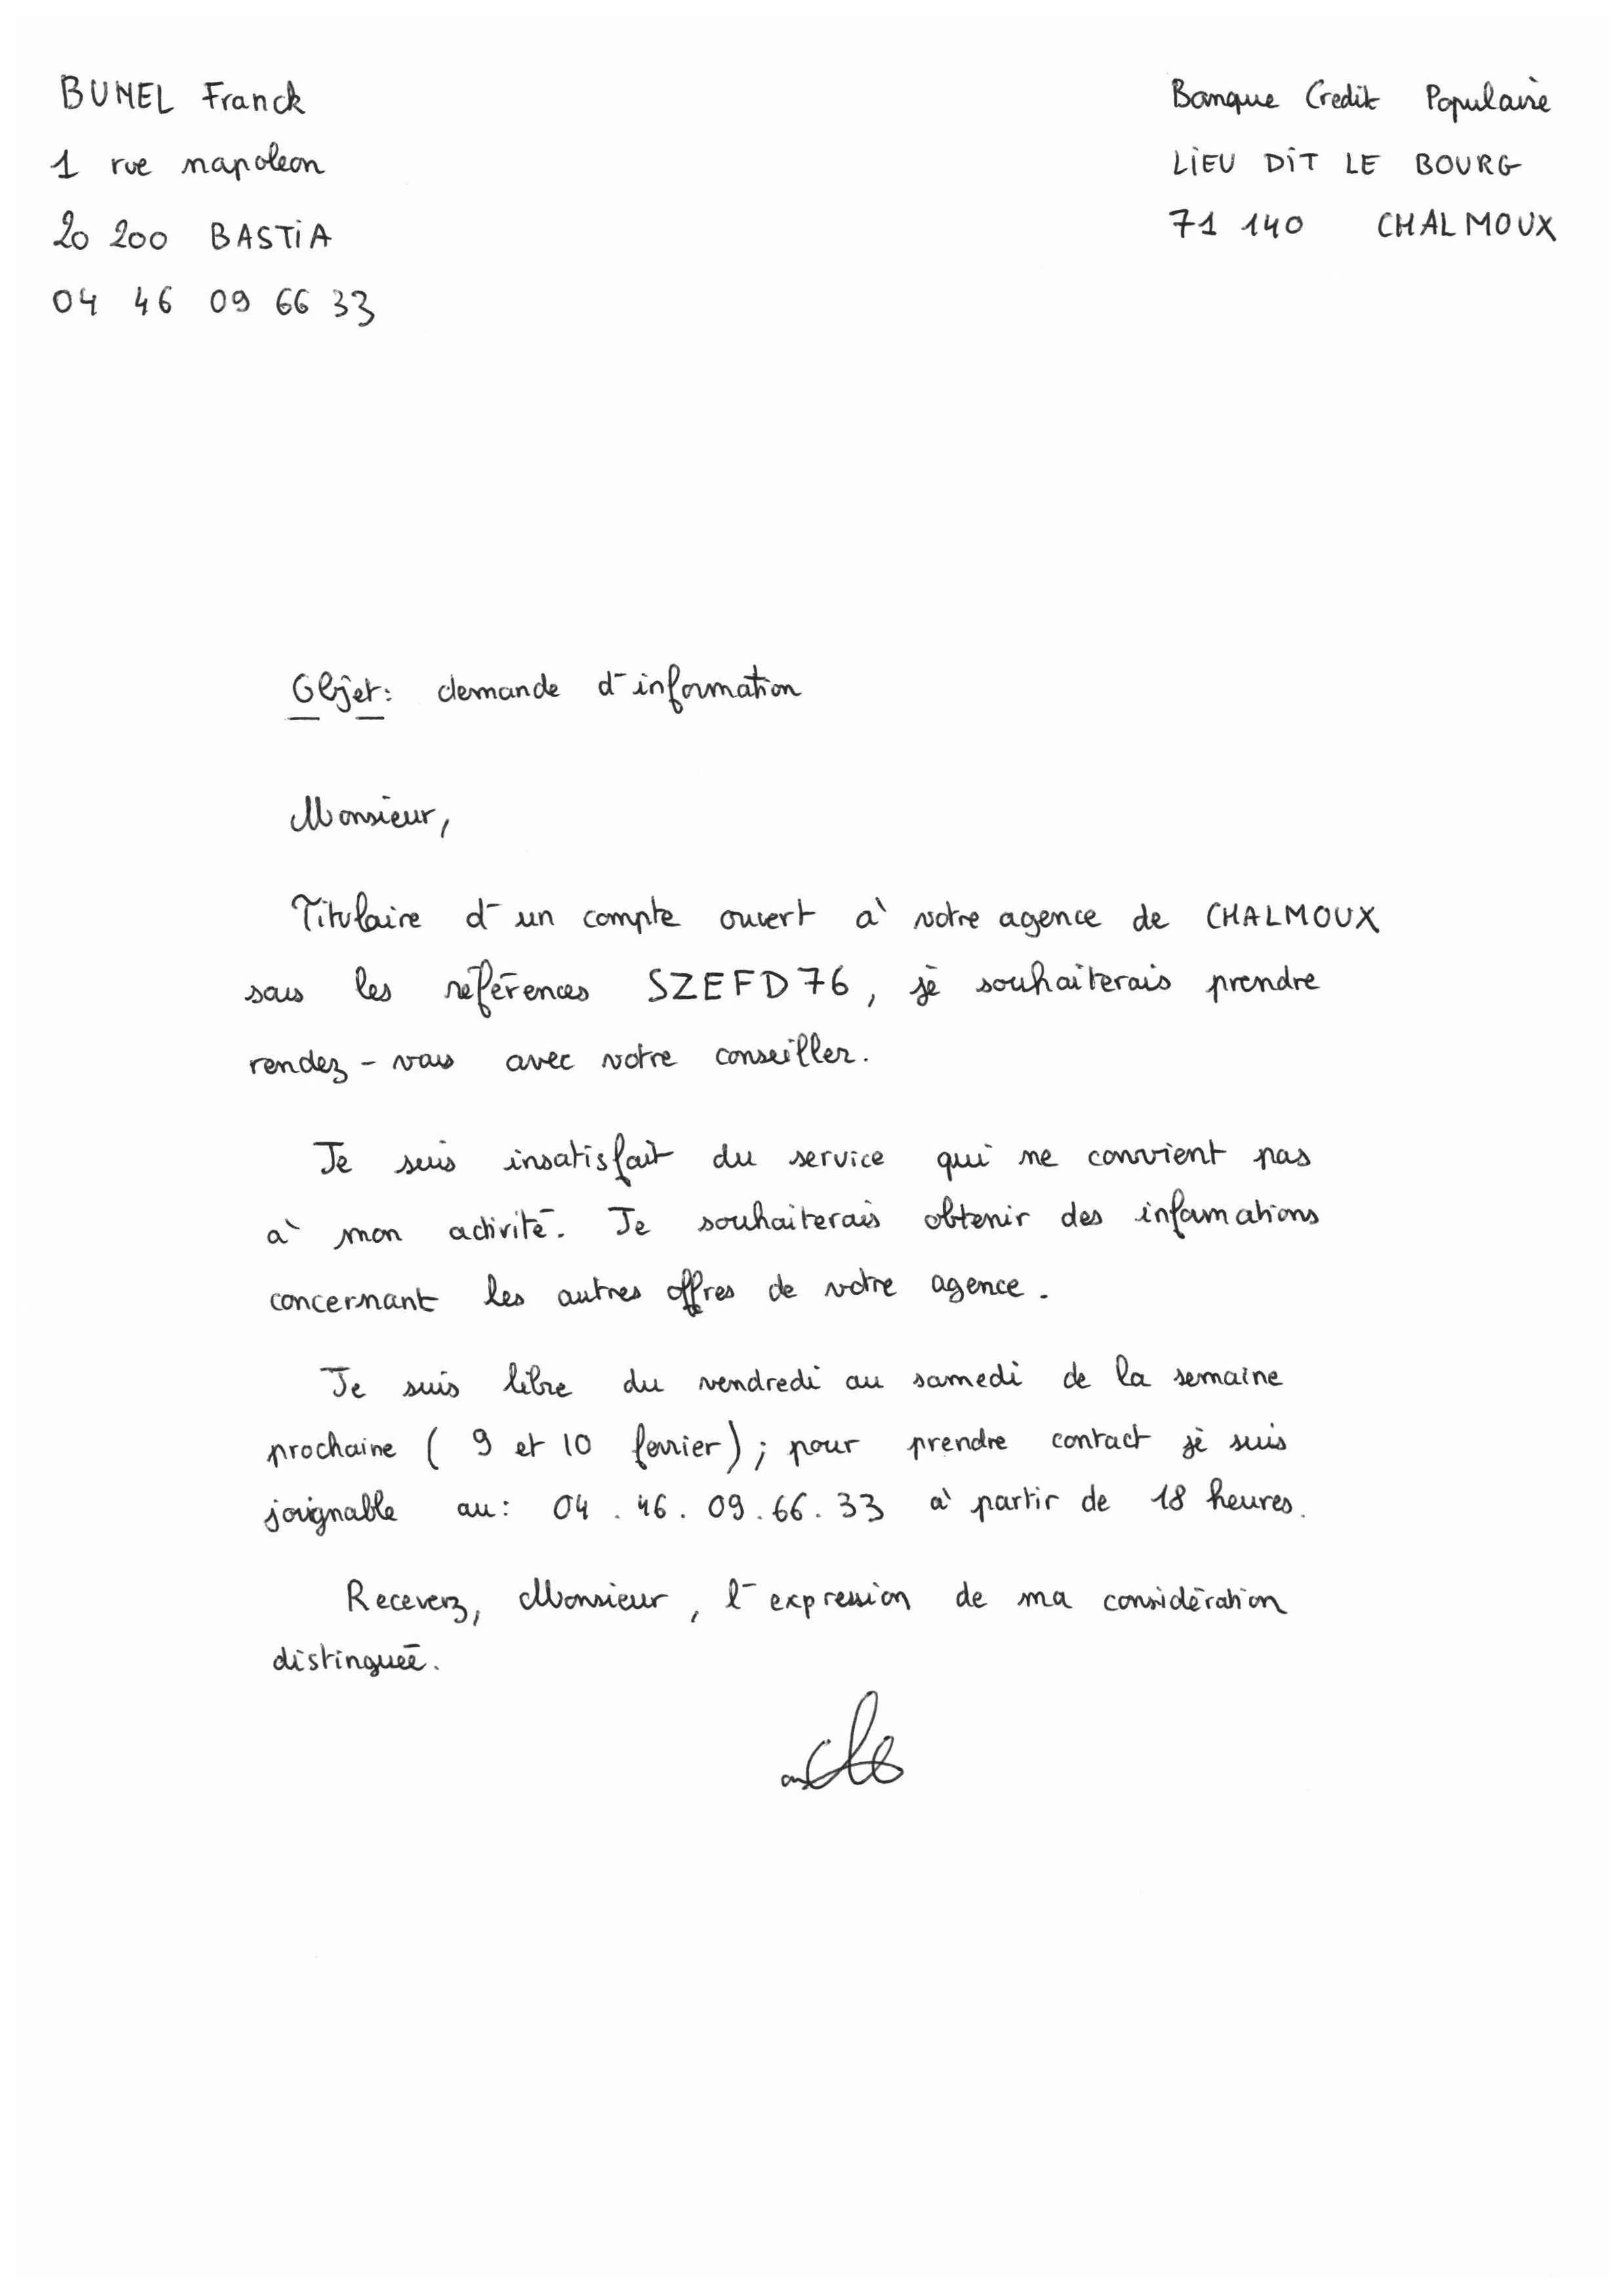 BUNEL Franck
1 rue napoleon
20 200 BASTIA
04 46 09 66 33
Banque Credit Populaire
LIEU DIT LE BOURG
71 140 CHALMOUX
Objet: demande d'information
Monsieur,
Titulaire d'un compte ouvert à votre agence de CHALMOUX
sous les références SZEFD76, je souhaiterais prendre
rendez-vous avec votre conseiller.
Je suis insatisfait du service qui ne convient pas
à mon activité. Je souhaiterais obtenir des informations
concernant les autres offres de votre agence.
Je suis libre du vendredi au samedi de la semaine
prochaine (9 et 10 fevrier); pour prendre contact je suis
joignable au: 04.46.09.66.33 à partir de 18 heures.
Recevez, Monsieur, l'expression de ma considération
distinguée.